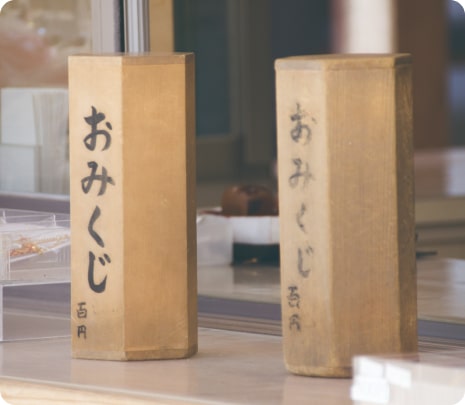 おみくじ
百円
おみくじ
百円